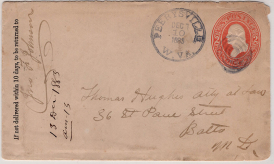 If not delivered within 10 days, to be returned to
Jno Johnson
13 Dec 1883
PERRYSVILLE
DEC
10
W.VA.
Thomas Hughes Atty at Law
36 St Paul Street
Balto
Md